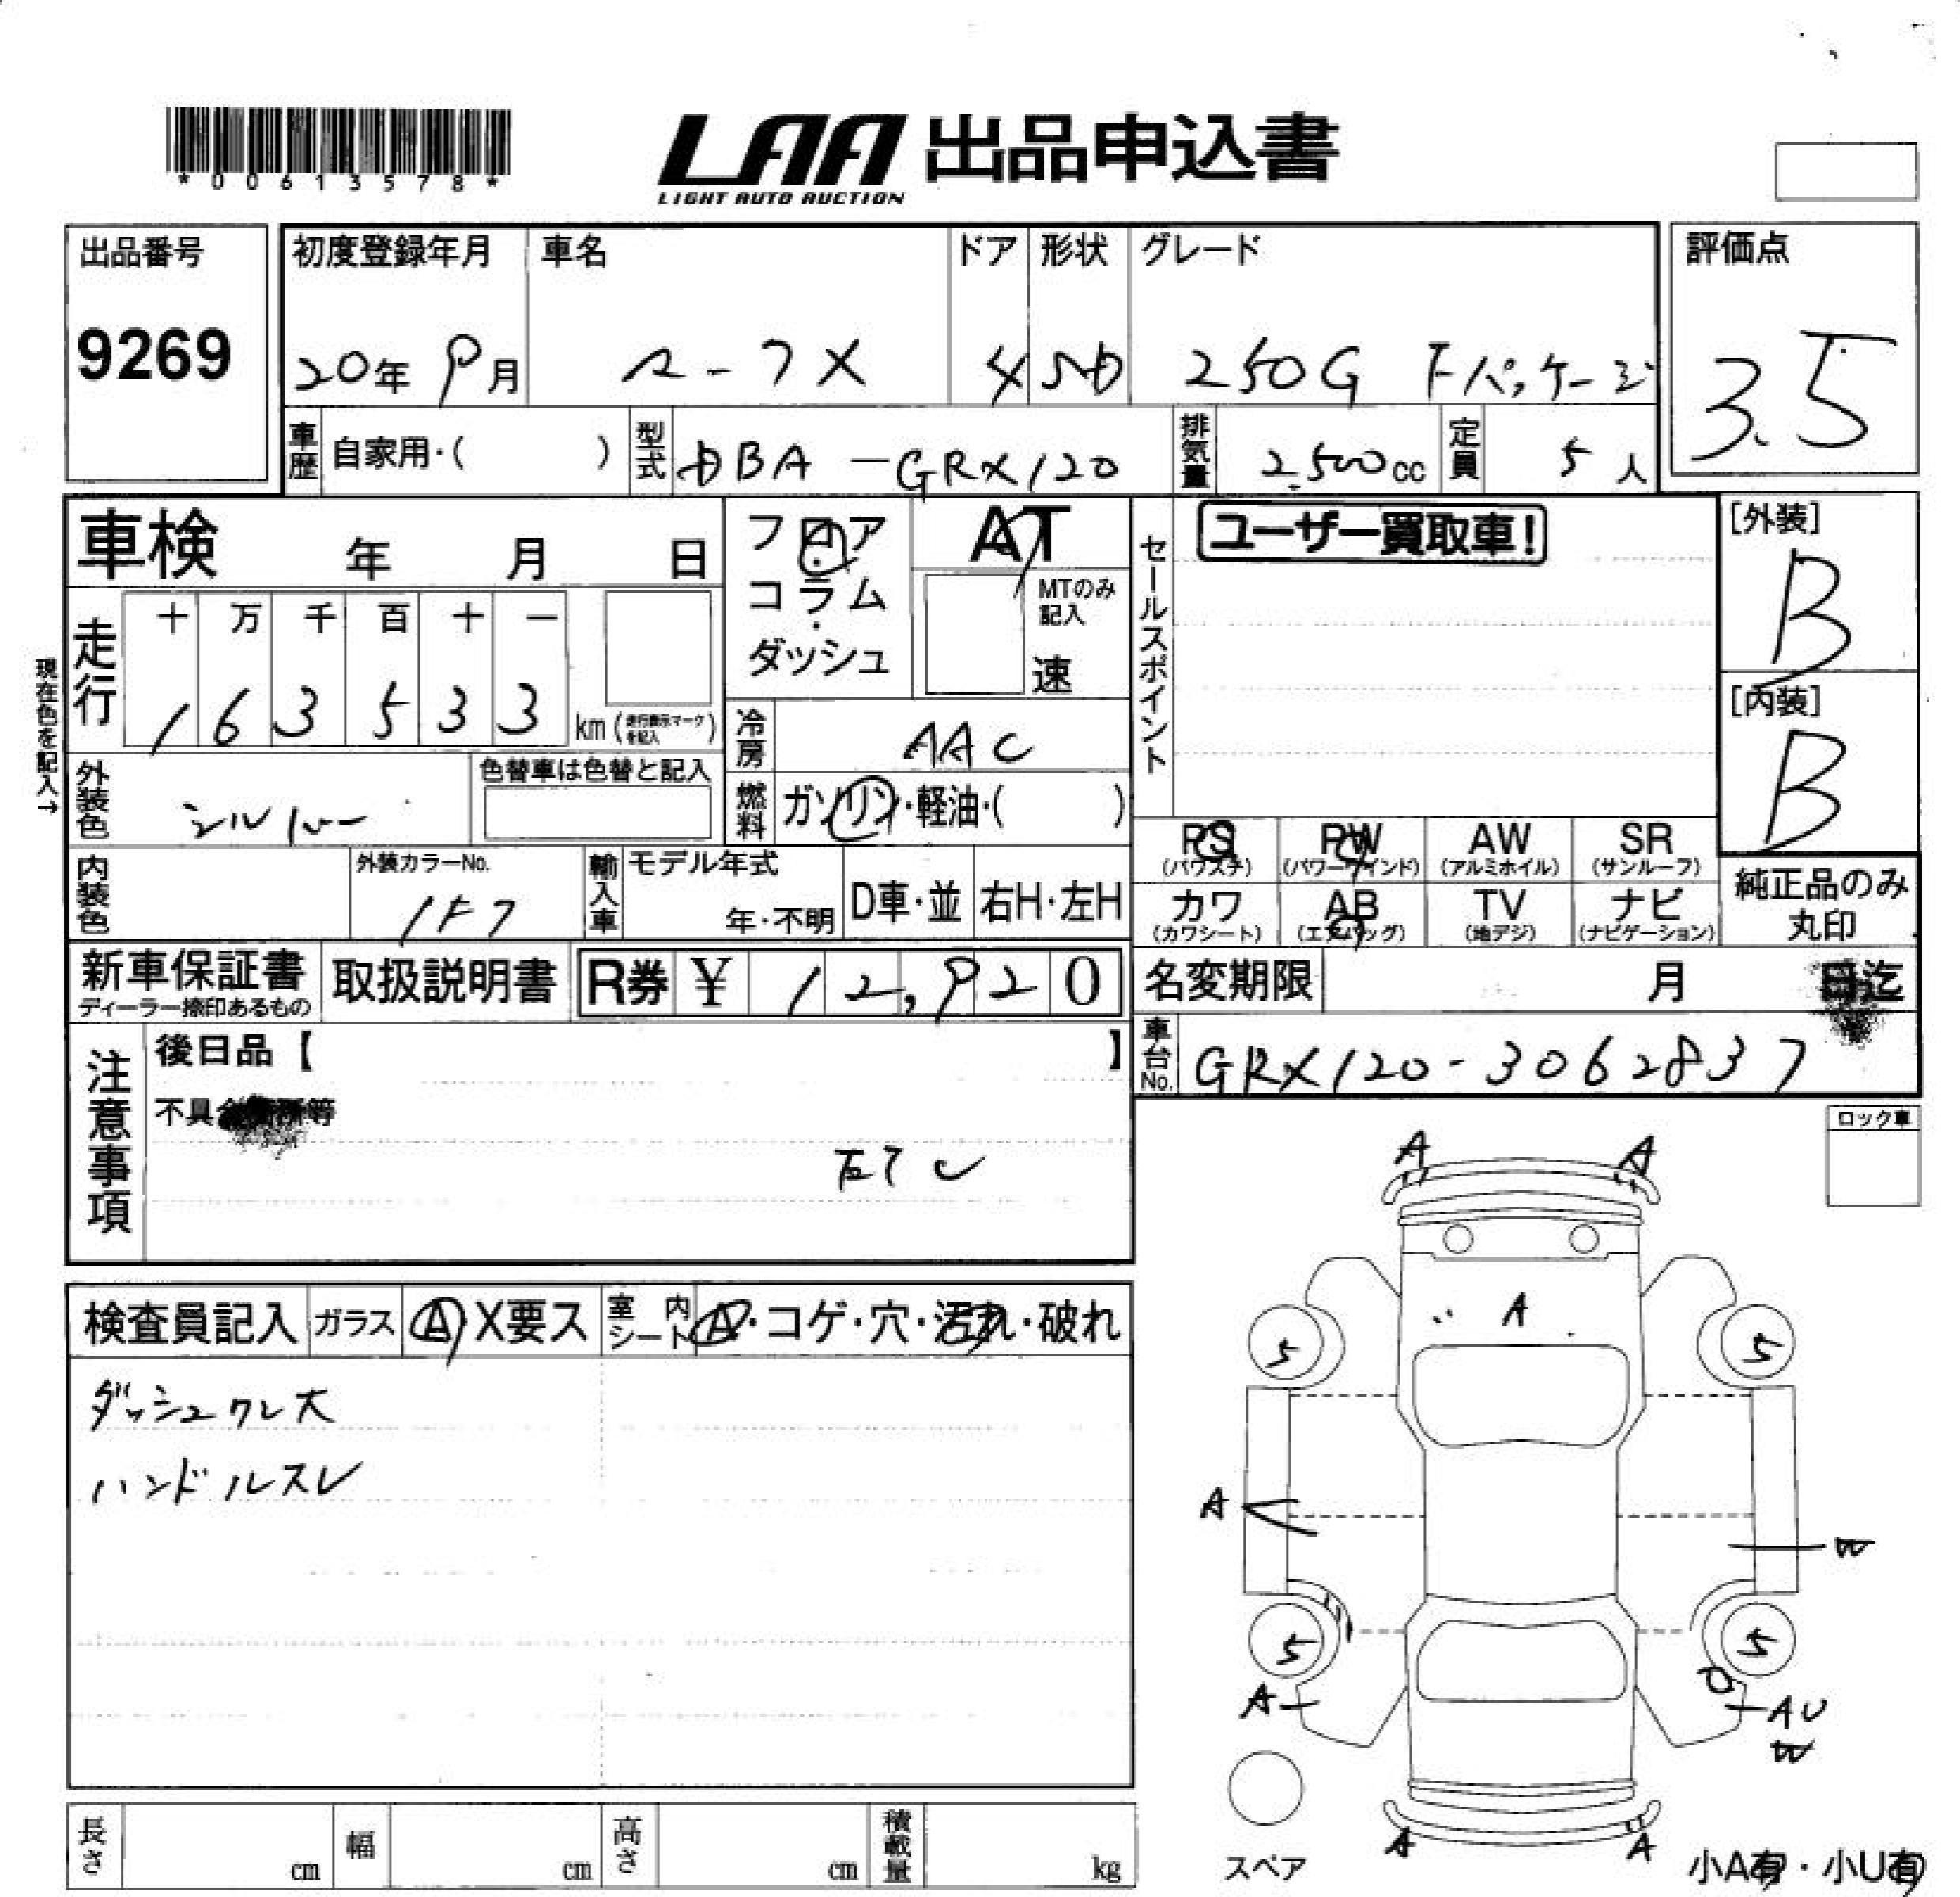 *00613578*
LAA 出品申込書
LIGHT AUTO AUCTION
出品番号
9269
初度登録年月 車名 ドア 形状 グレード
20年 9月 マークX 4 SD 250G Fパッケージ
評価点
3.5
車歴 自家用・( ) 型式 DBA-GRX120 排気量 2,500cc 定員 5人
車検 年 月 日
フロア・コラム・ダッシュ
AT
MTのみ記入
速
セールスポイント
ユーザー買取車!
[外装]
B
[内装]
B
現在色を記入→
走行 十 万 千 百 十 一
1 6 3 5 3 3 km (走行表示マークを記入)
冷房 AAC
外装色 シルバー 色替車は色替と記入
燃料 ガソリン・軽油・( )
PS PW AW SR
(パワステ) (パワーウインド) (アルミホイル) (サンルーフ)
カワ AB TV ナビ
(カワシート) (エアバッグ) (地デジ) (ナビゲーション)
純正品のみ
丸印
内装色 外装カラーNo. 1F7 輸入車 モデル年式 年・不明 D車・並 右H・左H
新車保証書 取扱説明書 R券 ¥ 12,920
ディーラー捺印あるもの
名変期限 月 日迄
車台No. GRX120-3062837
注意事項
後日品【 】
不具合箇所等
ETC
ロック車
検査員記入 ガラス A X要ス 室内シート A・コゲ・穴・汚れ・破れ
ダッシュワレ大
ハンドルスレ
A A
A
5 5
A
W
5 5
A AU
W
A A
スペア
小A有・小U有
長さ cm 幅 cm 高さ cm 積載量 kg